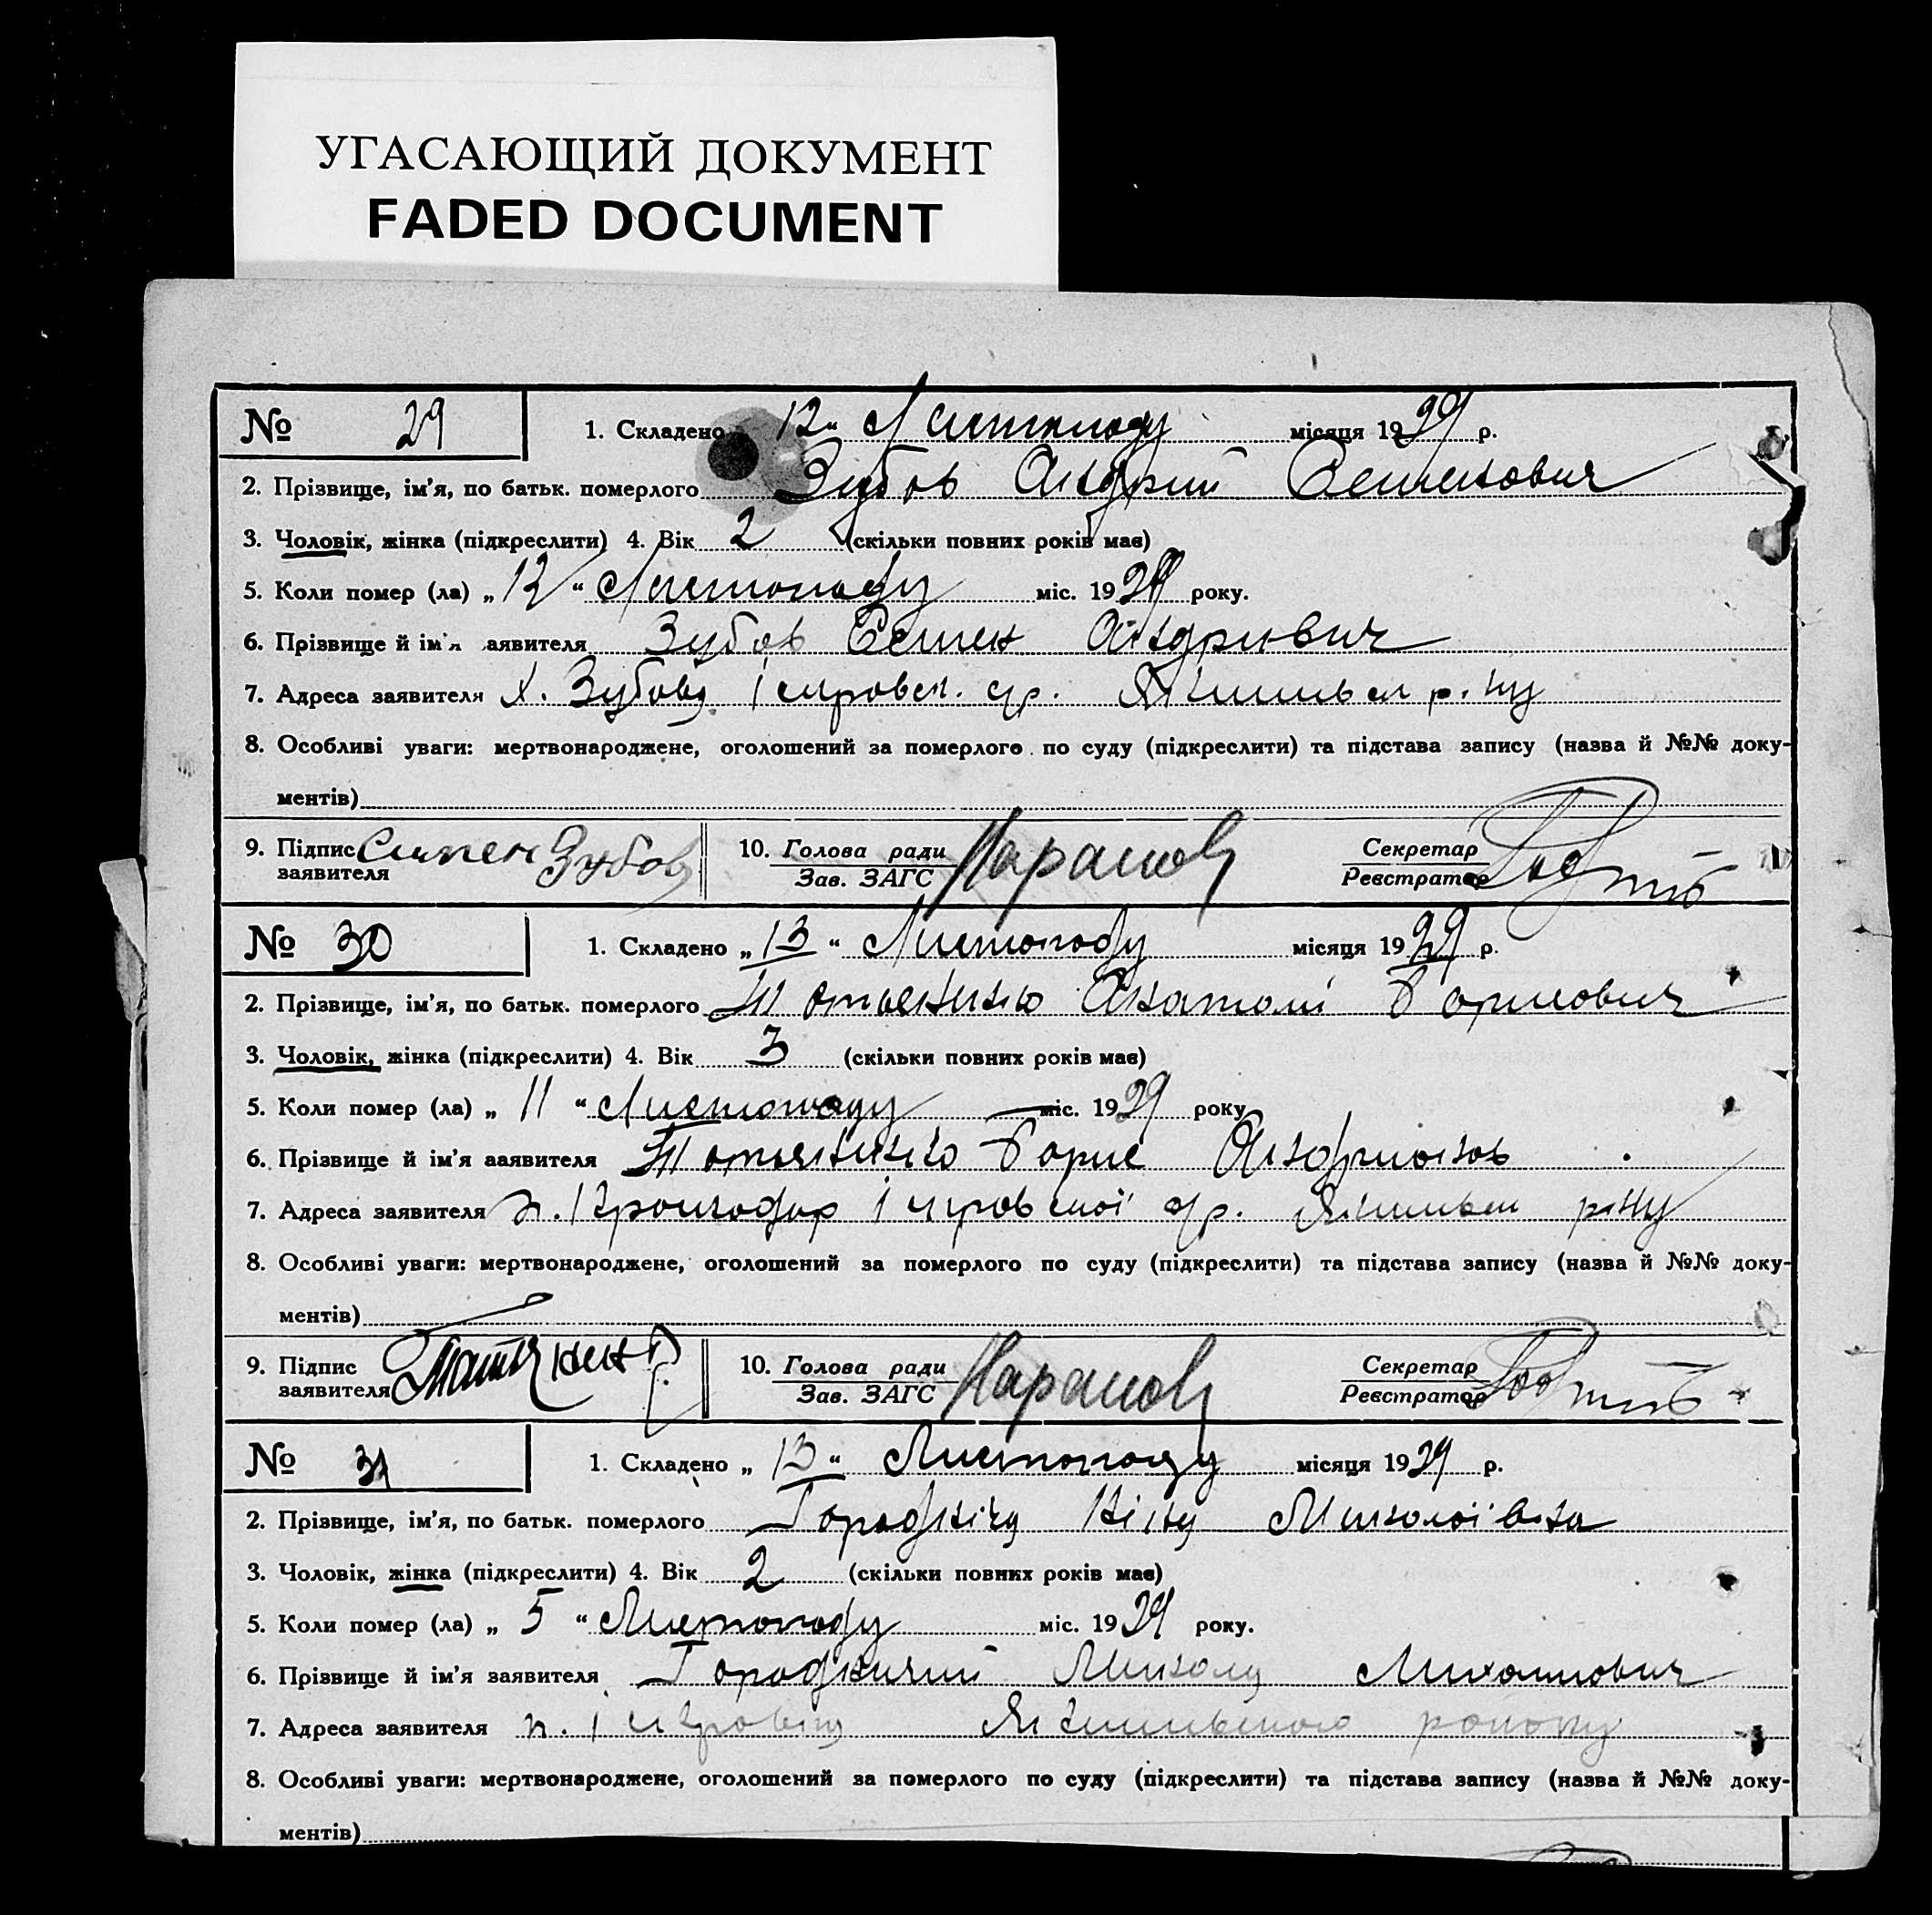 УГАСАЮЩИЙ ДОКУМЕНТ
FADED DOCUMENT
№ 29 1. Складено 12 " Листопаду місяця 1929 р.
2. Прізвище, ім'я, по батьк. померлого Зубов Андрий Семенович
3. Чоловік, жінка (підкреслити) 4. Вік 2 (скільки повних років має)
5. Коли помер (ла) „ 12 " Листопаду міс. 1929 року.
6. Прізвище й ім'я заявителя Зубов Семен Андриович
7. Адреса заявителя х. Зубова р.ну
8. Особливі уваги: мертвонароджене, оголошений за померлого по суду (підкреслити) та підстава запису (назва й №№ доку-
ментів)
9. Підпис заявителя Симен Зубов 10. Голова ради Зав. ЗАГС Секретар Реєстратор
№ 30 1. Складено „ 13 " Листопаду місяця 1929 р.
2. Прізвище, ім'я, по батьк. померлого Анатолі Борисович
3. Чоловік, жінка (підкреслити) 4. Вік 3 (скільки повних років має)
5. Коли помер (ла) „ 11 " Листопаду міс. 1929 року
6. Прізвище й ім'я заявителя Борис
7. Адреса заявителя р.ну
8. Особливі уваги: мертвонароджене, оголошений за померлого по суду (підкреслити) та підстава запису (назва й №№ доку-
ментів)
9. Підпис заявителя 10. Голова ради Зав. ЗАГС Секретар Реєстратор
№ 31 1. Складено „ 13 " Листопаду місяця 1929 р.
2. Прізвище, ім'я, по батьк. померлого Ніну Миколоївна
3. Чоловік, жінка (підкреслити) 4. Вік 2 (скільки повних років має)
5. Коли помер (ла) „ 5 " Листопаду міс. 1929 року.
6. Прізвище й ім'я заявителя Микола Михайлович
7. Адреса заявителя району
8. Особливі уваги: мертвонароджене, оголошений за померлого по суду (підкреслити) та підстава запису (назва й №№ доку-
ментів)